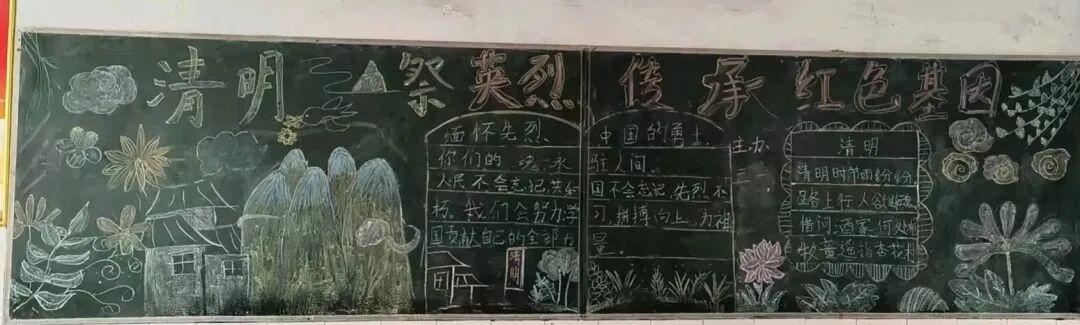 清明 祭英烈 传承红色基因
缅怀先烈 中国的勇士,
你们的魂永驻人间。
人民不会忘记共和国不会忘记先烈不
。我们会努力学习,拼搏向上,为祖
国贡献自己的全部力量.
清明
主办
三一
清明
清明时节雨纷纷
路上行人欲断魂
借问酒家何处有
牧童遥指杏花村